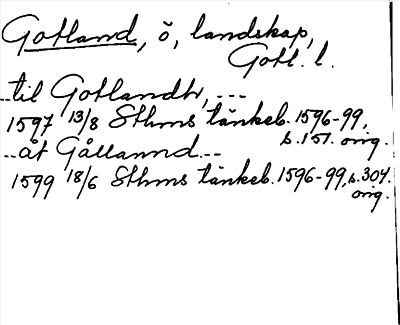 Gotland, ö, landskap,
Gotl. l.
..til Gotlandh, ---
1597 13/8 Sthms tänkeb. 1596-99,
s. 151. orig.
..åt Gållannd...
1599 18/6 Sthms tänkeb. 1596-99, s. 304.
orig.